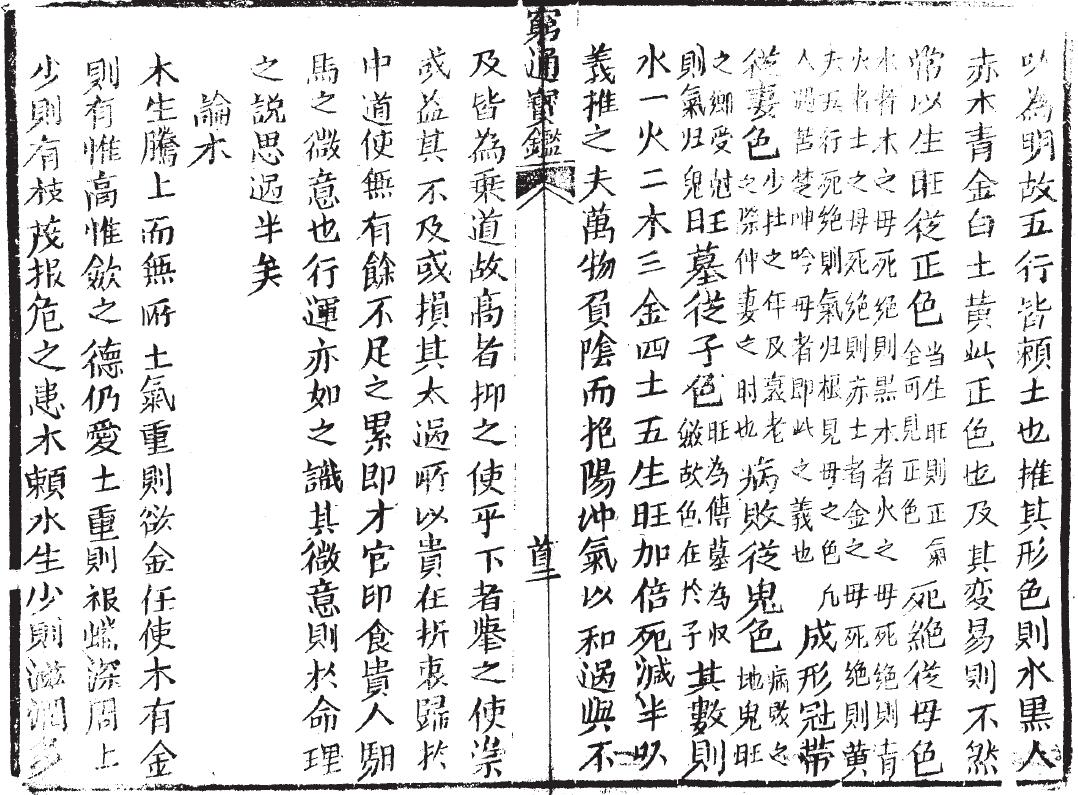 以為明故五行皆頼土也推其形色則水黒人
赤木青金白土黄此正色也及其変易則不然
常以生旺従正色當生旺則正氣全可見正色死絶従母色
水者木之母死絶則黒木者火之母死絶則青
火者土之母死絶則赤土者金之母死絶則黄
夫五行死絶則氣归根見母之色凢
人遇苦楚呻吟母者即此之義也成形冠帯
従妻色少壮之年及衰老之際仲妻之时也病敗従鬼色病敗之地鬼旺
之鄉受尅旺則氣归鬼旺墓従子色旺為傳墓為収斂故色在於子其數則
水一火二木三金四土五生旺加倍死減半以
義推之夫萬物負陰而抱陽冲氣以和過與不
窮通寳鑑
首二
及皆為乗道故高者抑之使平下者舉之使崇
或益其不及或損其太過所以貴在折衷歸於
中道使無有餘不足之累即才官印食貴人馹
馬之微意也行運亦如之識其微意則於命理
之説思过半矣
論木
木生騰上而無所土氣重則欲金任使木有金
則有惟高惟歛之德仍愛土重則根蟠深固上
少則有枝茂根危之患木頼水生少則滋潤多